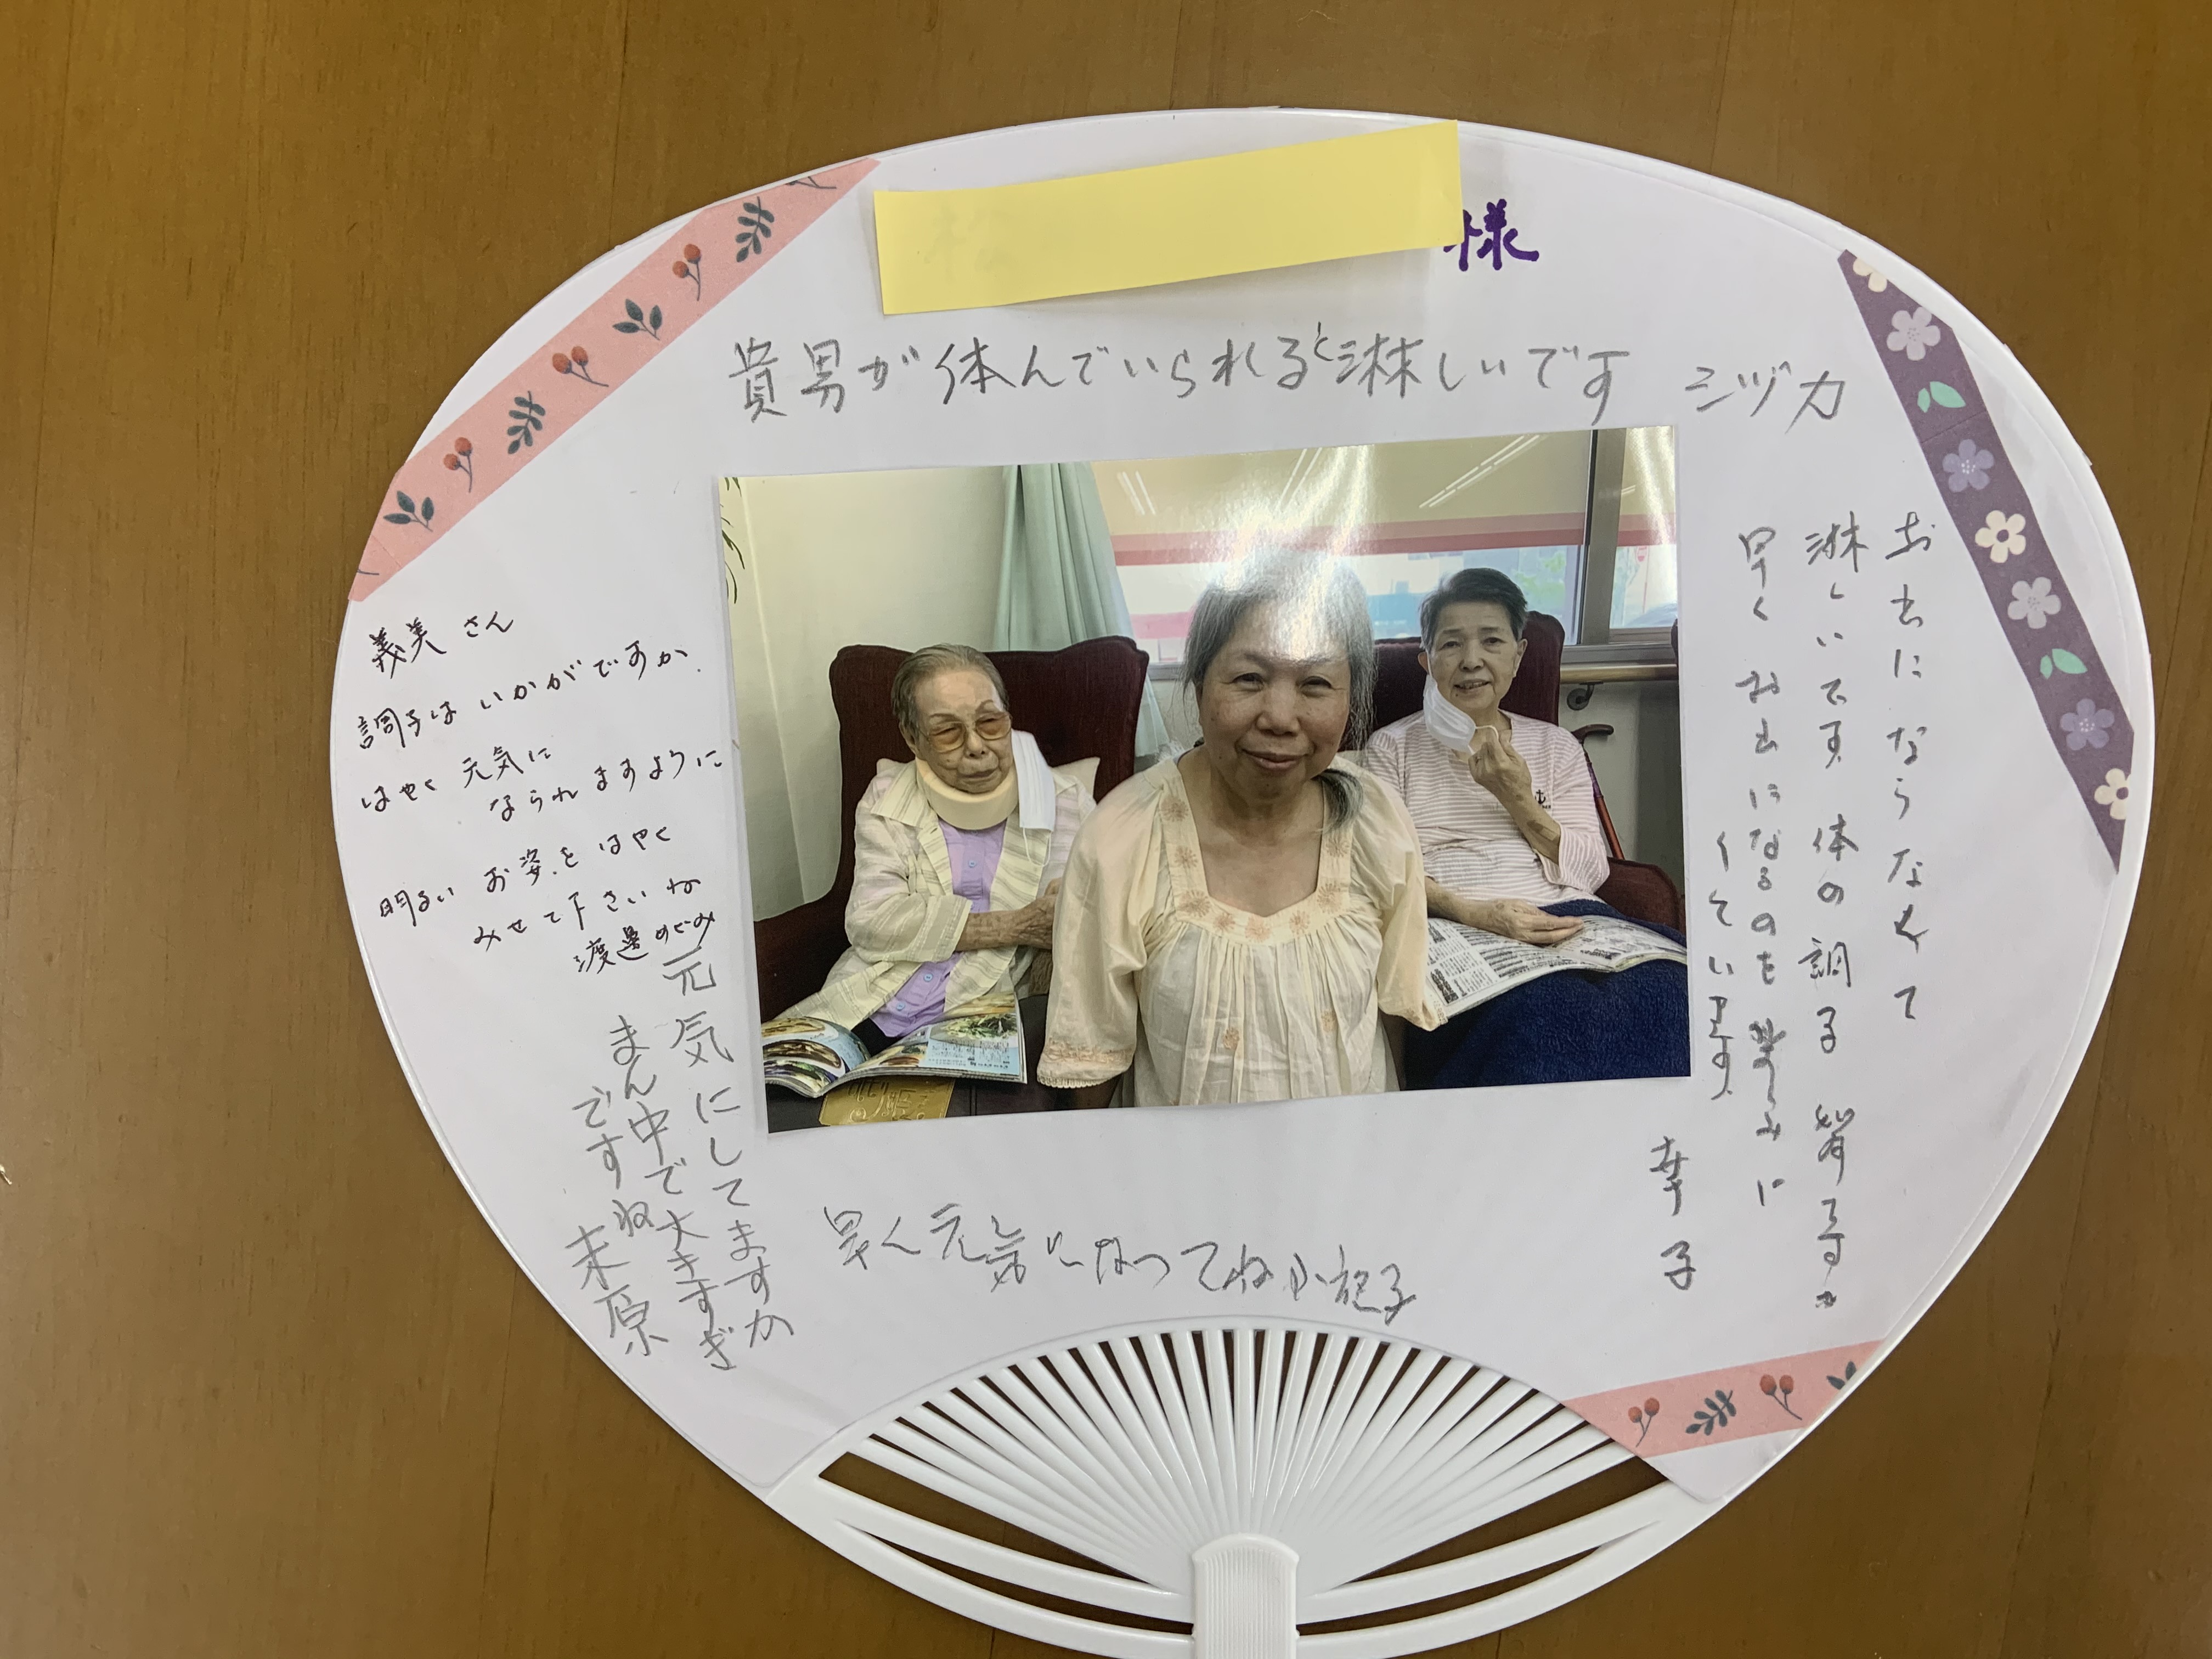 様
貴男が休んでいられると淋しいです シヅカ
お出にならなくて
淋しいです 体の調子
早くお出になるのを楽しみに
しています
幸子
義美さん
調子はいかがですか
はやく元気に
なられますように
明るいお姿をはやく
みせて下さいね
渡邊めぐみ
元気にしてますか
まん中で大きすぎ
ですね 末原
早く元気になってね